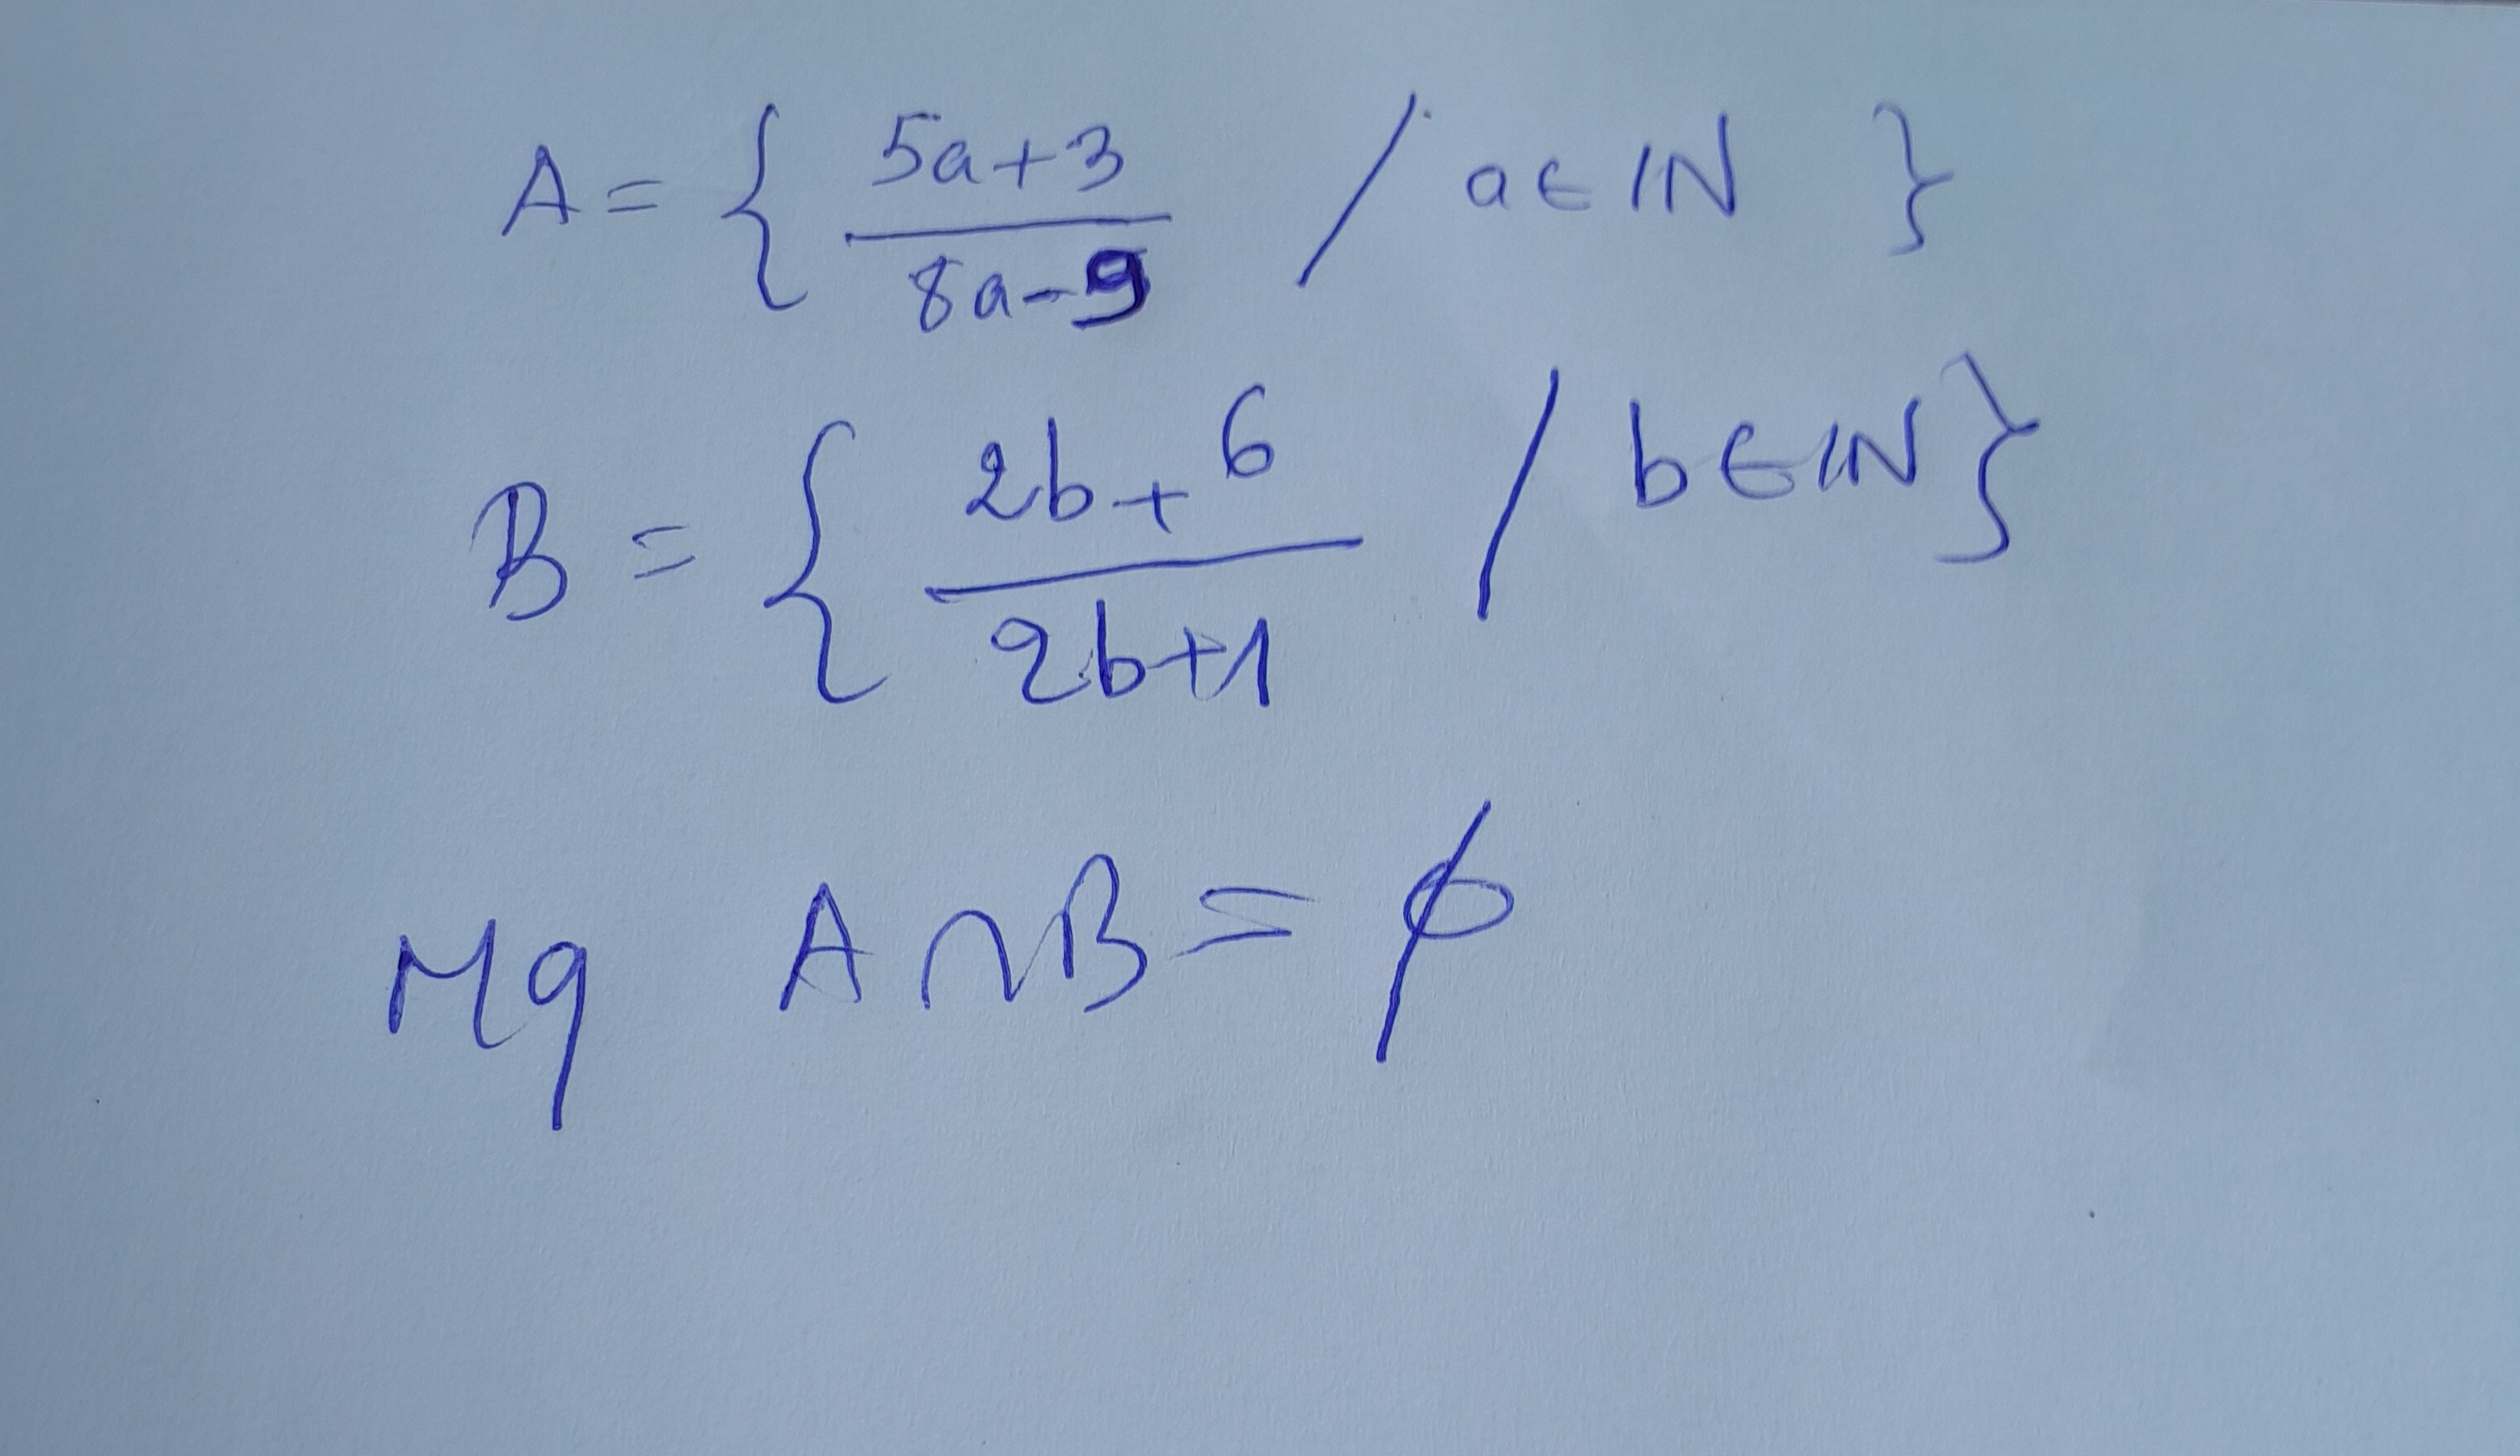 A = { 5a+3 / 8a-9 / a ∈ IN }
B = { 2b+6 / 2b+1 / b ∈ IN }
Mq A ∩ B = ϕ